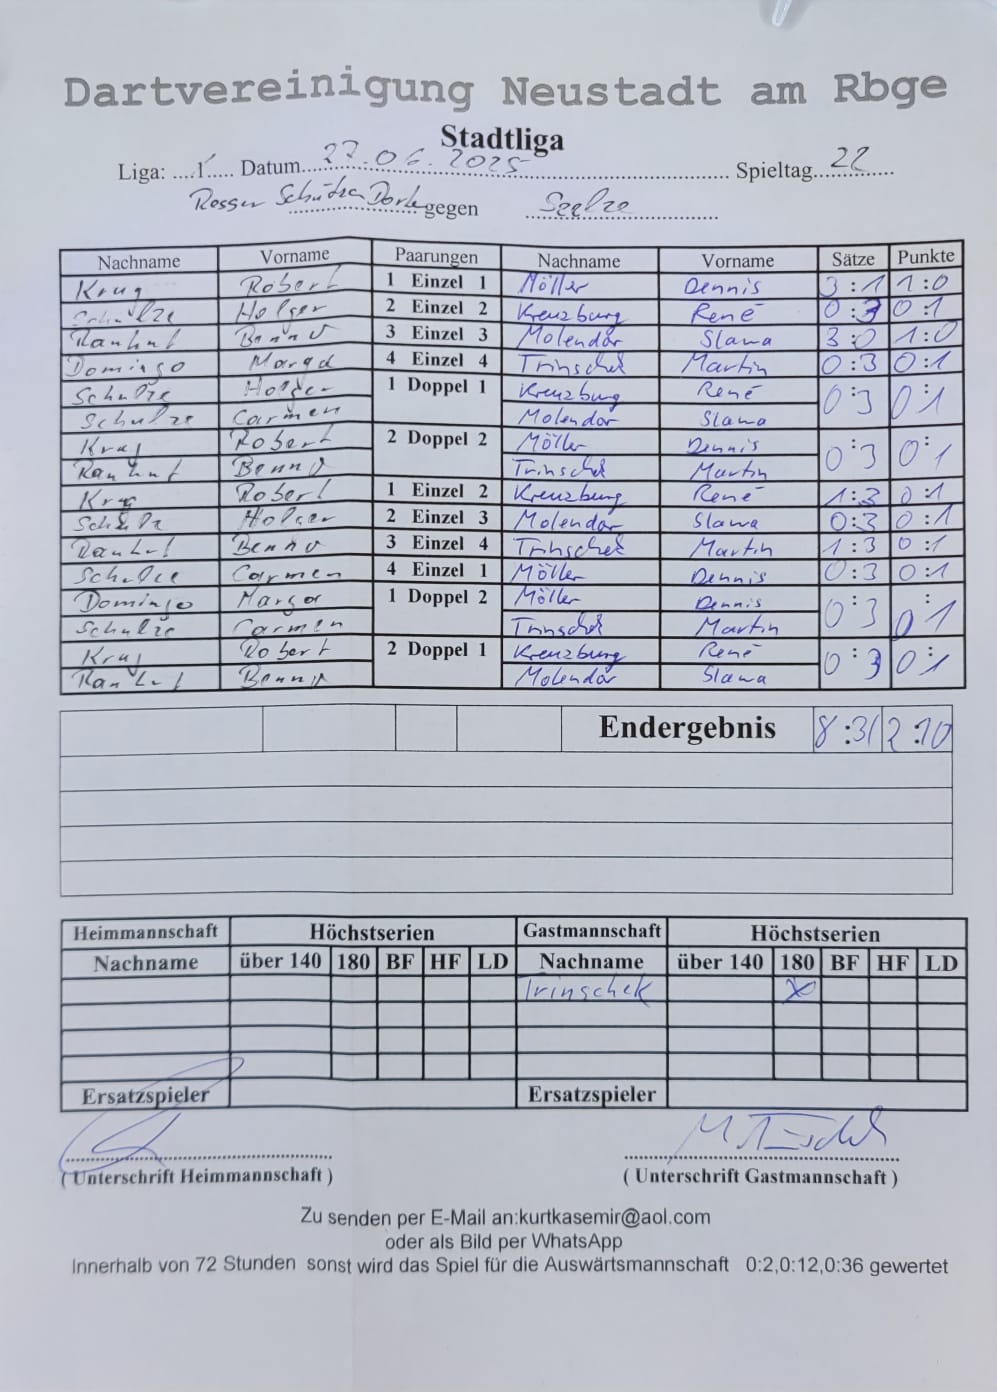 Dartvereinigung Neustadt am Rbge
Stadtliga
Liga: ....1..... Datum....27.06.2025.... Spieltag..22........
Schützen gegen Seelze
Nachname Vorname Paarungen Nachname Vorname Sätze Punkte
Krug Robert 1 Einzel 1 Möller Dennis 3:1 1:0
Schulze Holger 2 Einzel 2 Kreuzburg René 0:3 0:1
Ranhut Benno 3 Einzel 3 Molendar Slawa 3:0 1:0
Domingo Margot 4 Einzel 4 Trinschek Martin 0:3 0:1
Schulze Holger 1 Doppel 1 Kreuzburg René 0:3 0:1
Schulze Carmen Molendar Slawa
Krug Robert 2 Doppel 2 Möller Dennis 0:3 0:1
Ranhut Benno Trinschek Martin
Krug Robert 1 Einzel 2 Kreuzburg René 1:3 0:1
Schulze Holger 2 Einzel 3 Molendar Slawa 0:3 0:1
Ranhut Benno 3 Einzel 4 Trinschek Martin 1:3 0:1
Schulze Carmen 4 Einzel 1 Möller Dennis 0:3 0:1
Domingo Margot 1 Doppel 2 Möller Dennis 0:3 0:1
Schulze Carmen Trinschek Martin
Krug Robert 2 Doppel 1 Kreuzburg René 0:3 0:1
Ranhut Benno Molendar Slawa
Endergebnis 8:31 2:10
Heimmannschaft Höchstserien Gastmannschaft Höchstserien
Nachname über 140 180 BF HF LD Nachname über 140 180 BF HF LD
Trinschek X
Ersatzspieler Ersatzspieler
(Unterschrift Heimmannschaft) (Unterschrift Gastmannschaft)
Zu senden per E-Mail an:kurtkasemir@aol.com
oder als Bild per WhatsApp
Innerhalb von 72 Stunden sonst wird das Spiel für die Auswärtsmannschaft 0:2,0:12,0:36 gewertet